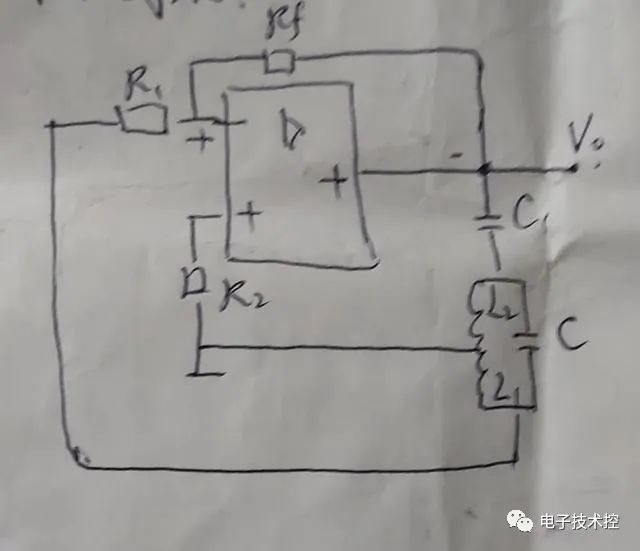 Rf
R₁
+ -
▷
-
V₀
+
+
C₁
R₂
L₂
C
L₁
电子技术控